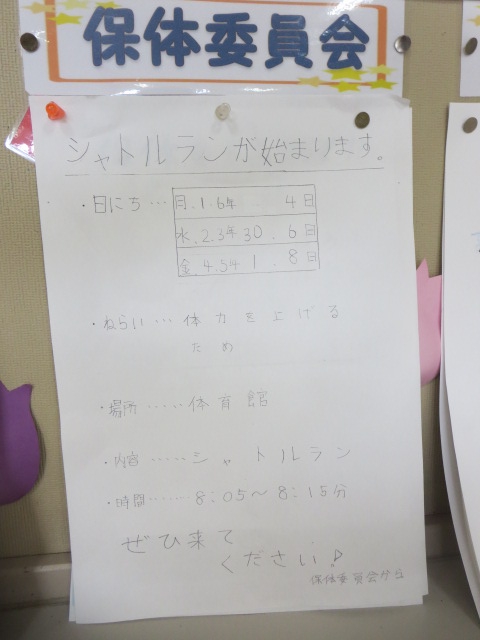 保体委員会
シャトルランが始まります。
・日にち…月.1.6年 4日
水.2.3年30.6日
金.4.5年1.8日
・ねらい…体力を上げる
ため
・場所……体育館
・内容……シャトルラン
・時間……8:05〜8:15分
ぜひ来て
ください!
保体委員会から